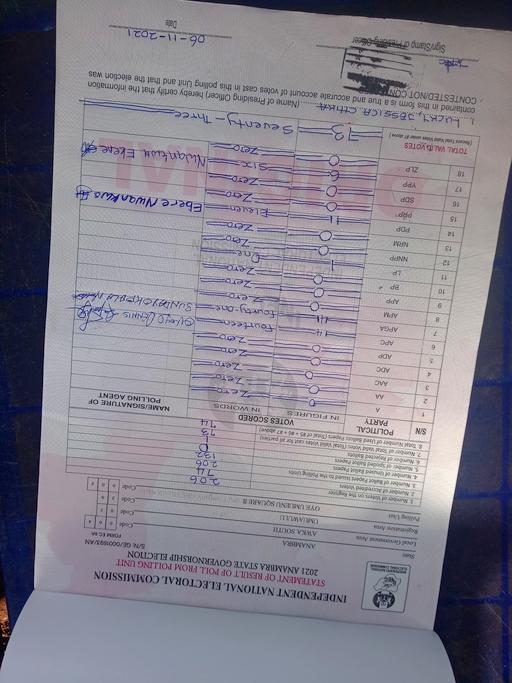 INDEPENDENT NATIONAL ELECTORAL COMMISSION
STATEMENT OF RESULT OF POLL FROM POLLING UNIT
2021 ANAMBRA STATE GOVERNORSHIP ELECTION
FORM EC 8A
State ANAMBRA Code
Local Government Area AWKA SOUTH Code
Registration Area UMUAWULU Code
Polling Unit OYE UMUENU SQUARE II Code
1. Number of Voters on the Register 206
2. Number of Accredited Voters 74
3. Number of Ballot Papers Issued to the Polling Unit 206
4. Number of Unused Ballot Papers 132
5. Number of Spoiled Ballot Papers 0
6. Number of Rejected Ballots 1
7. Number of Total Valid Votes (Total Valid Votes cast for all parties) 73
8. Total Number of Used Ballot Papers (Total of #5 + #6 + #7 above) 74
S/N POLITICAL PARTY VOTES SCORED NAME/SIGNATURE OF POLLING AGENT
IN FIGURES IN WORDS
1 A 0 Zero
2 AA 0 Zero
3 AAC 0 Zero
4 ADC 0 Zero
5 ADP 0 Zero
6 APC 14 Fourteen
7 APGA 41 Fourty-one
8 APM 0 Zero
9 APP 0 Zero
10 BP 0 Zero
11 LP 1 One
12 NNPP 0 Zero
13 NRM 0 Zero
14 PDP 11 Eleven Ebere Nwankwo
15 PRP 0 Zero
16 SDP 0 Zero
17 YPP 6 Six Nwankwo Ebere
18 ZLP 0 Zero
TOTAL VALID VOTES 73 Seventy-Three
(Record Total Valid Votes under #7 above)
I, LUCKY JESSICA CHIKA (Name of Presiding Officer) hereby certify that the information
contained in this form is a true and accurate account of votes cast in this polling Unit and that the election was
CONTESTED/NOT CONTESTED
06-11-2021
Sign/Stamp of Presiding Officer Date